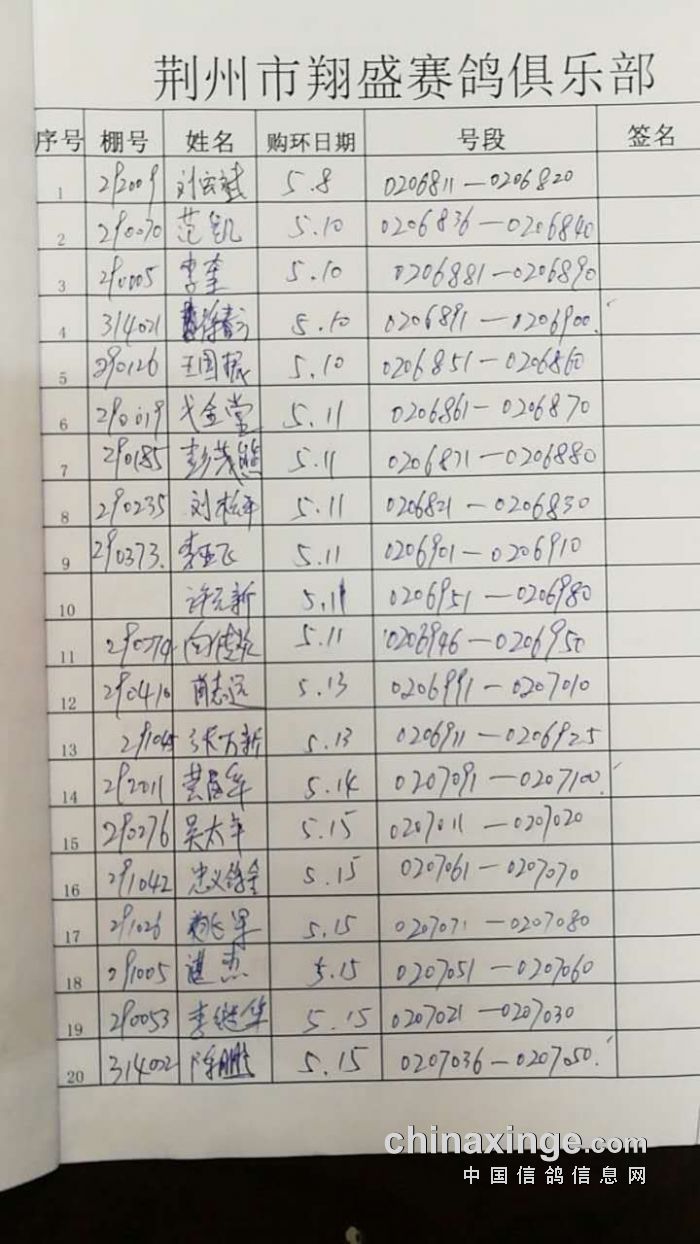 荆州市翔盛赛鸽俱乐部
序号 棚号 姓名 购环日期 号段 签名
1 292009 5.8 0206811—0206820
2 290070 范凯 5.10 0206836—0206840
3 290005 李奎 5.10 0206881—0206890
4 314021 5.10 0206891—0206900
5 290126 王国振 5.10 0206851—0206860
6 290019 戈金堂 5.11 0206861—0206870
7 290185 彭茂熊 5.11 0206871—0206880
8 290235 刘松年 5.11 0206821—0206830
9 290373. 李亚飞 5.11 0206901—0206910
10 许元新 5.11 0206951—0206980
11 5.11 0206946—0206950
12 290410 肖志远 5.13 0206991—0207010
13 张万新 5.13 0206911—0206925
14 292011 5.14 0207091—0207100
15 290276 吴太年 5.15 0207011—0207020
16 291042 5.15 0207061—0207070
17 291026 5.15 0207071—0207080
18 291005 谌杰 5.15 0207051—0207060
19 290053 李继华 5.15 0207021—0207030
20 314002 陈鹏 5.15 0207036—0207050.
chinaxinge.com
中国信鸽信息网